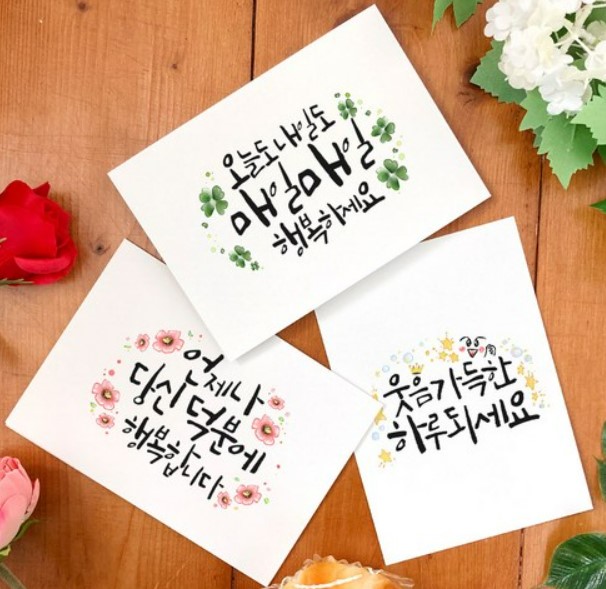 오늘도 내일도
매일매일
행복하세요
언제나
당신 덕분에
행복합니다
웃음가득한
하루되세요